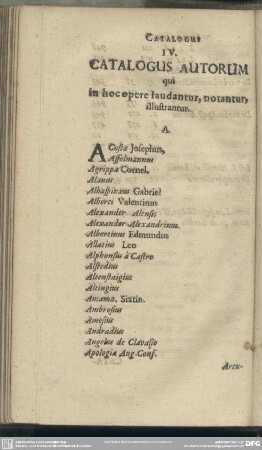 CATALOGUS
IV.
CATALOGUS AUTORUM
qui
in hoc opere laudantur, notantur,
illustrantur.
A.
ACosta Josephus,
Affelmannus
Agrippa Cornel.
Alanus
Albaspinæus Gabriel
Alberti Valentinus
Alexander Alensis
Alexander Alexandrinus.
Albertinus Edmundus
Allatius Leo
Alphonsus à Castro
Alstedius
Altenstaigius
Altingius
Amama, Sixtin.
Ambrosius
Amesius
Andradius
Angelus de Clavasio
Apologia Aug. Conf.